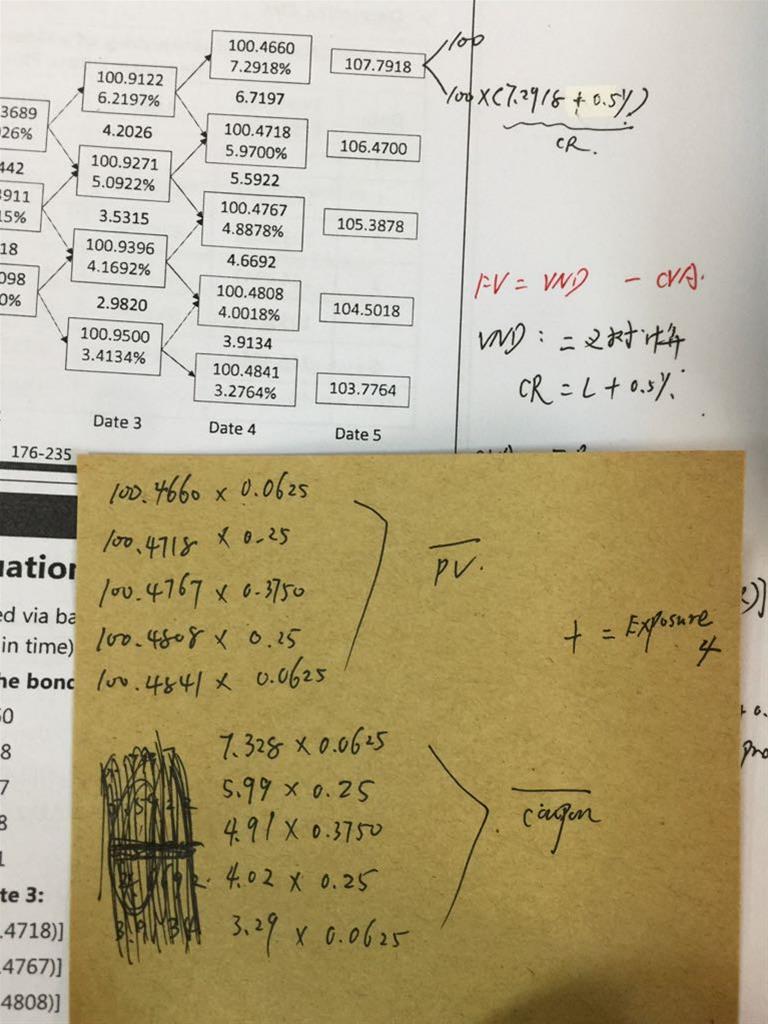 100.4660
7.2918%
107.7918
100
100.9122
6.2197%
6.7197
100×(7.2918 + 0.5%)
CR.
3689
026%
4.2026
100.4718
5.9700%
106.4700
442
100.9271
5.0922%
5.5922
3911
15%
3.5315
100.4767
4.8878%
105.3878
18
100.9396
4.1692%
4.6692
FV = VND - CVA.
098
0%
2.9820
100.4808
4.0018%
104.5018
VND : = 叉树计算
100.9500
3.4134%
3.9134
CR = L + 0.5%
100.4841
3.2764%
103.7764
Date 3
Date 4
Date 5
176-235
100.4660 × 0.0625
100.4718 × 0.25
100.4767 × 0.3750
100.4808 × 0.25
100.4841 × 0.0625
PV.
+ = Exposure 4
7.328 × 0.0625
5.99 × 0.25
4.91 × 0.3750
4.02 × 0.25
3.29 × 0.0625
coupon
uation
ed via ba
in time)
he bond
50
8
7
8
1
te 3:
.4718)]
.4767)]
4808)]